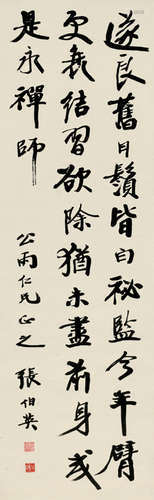 遂良舊日鬚皆白祕監今年臂
更結習欲除猶未盡前身或
是永禪師
公雨仁兄正之
張伯英